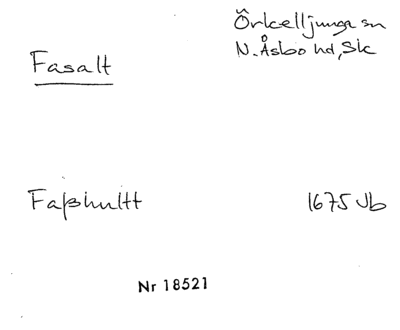 Örkelljunga sn
N. Åsbo hd, Sk
Fasalt
Faßhultt 1675 Jb
Nr 18521